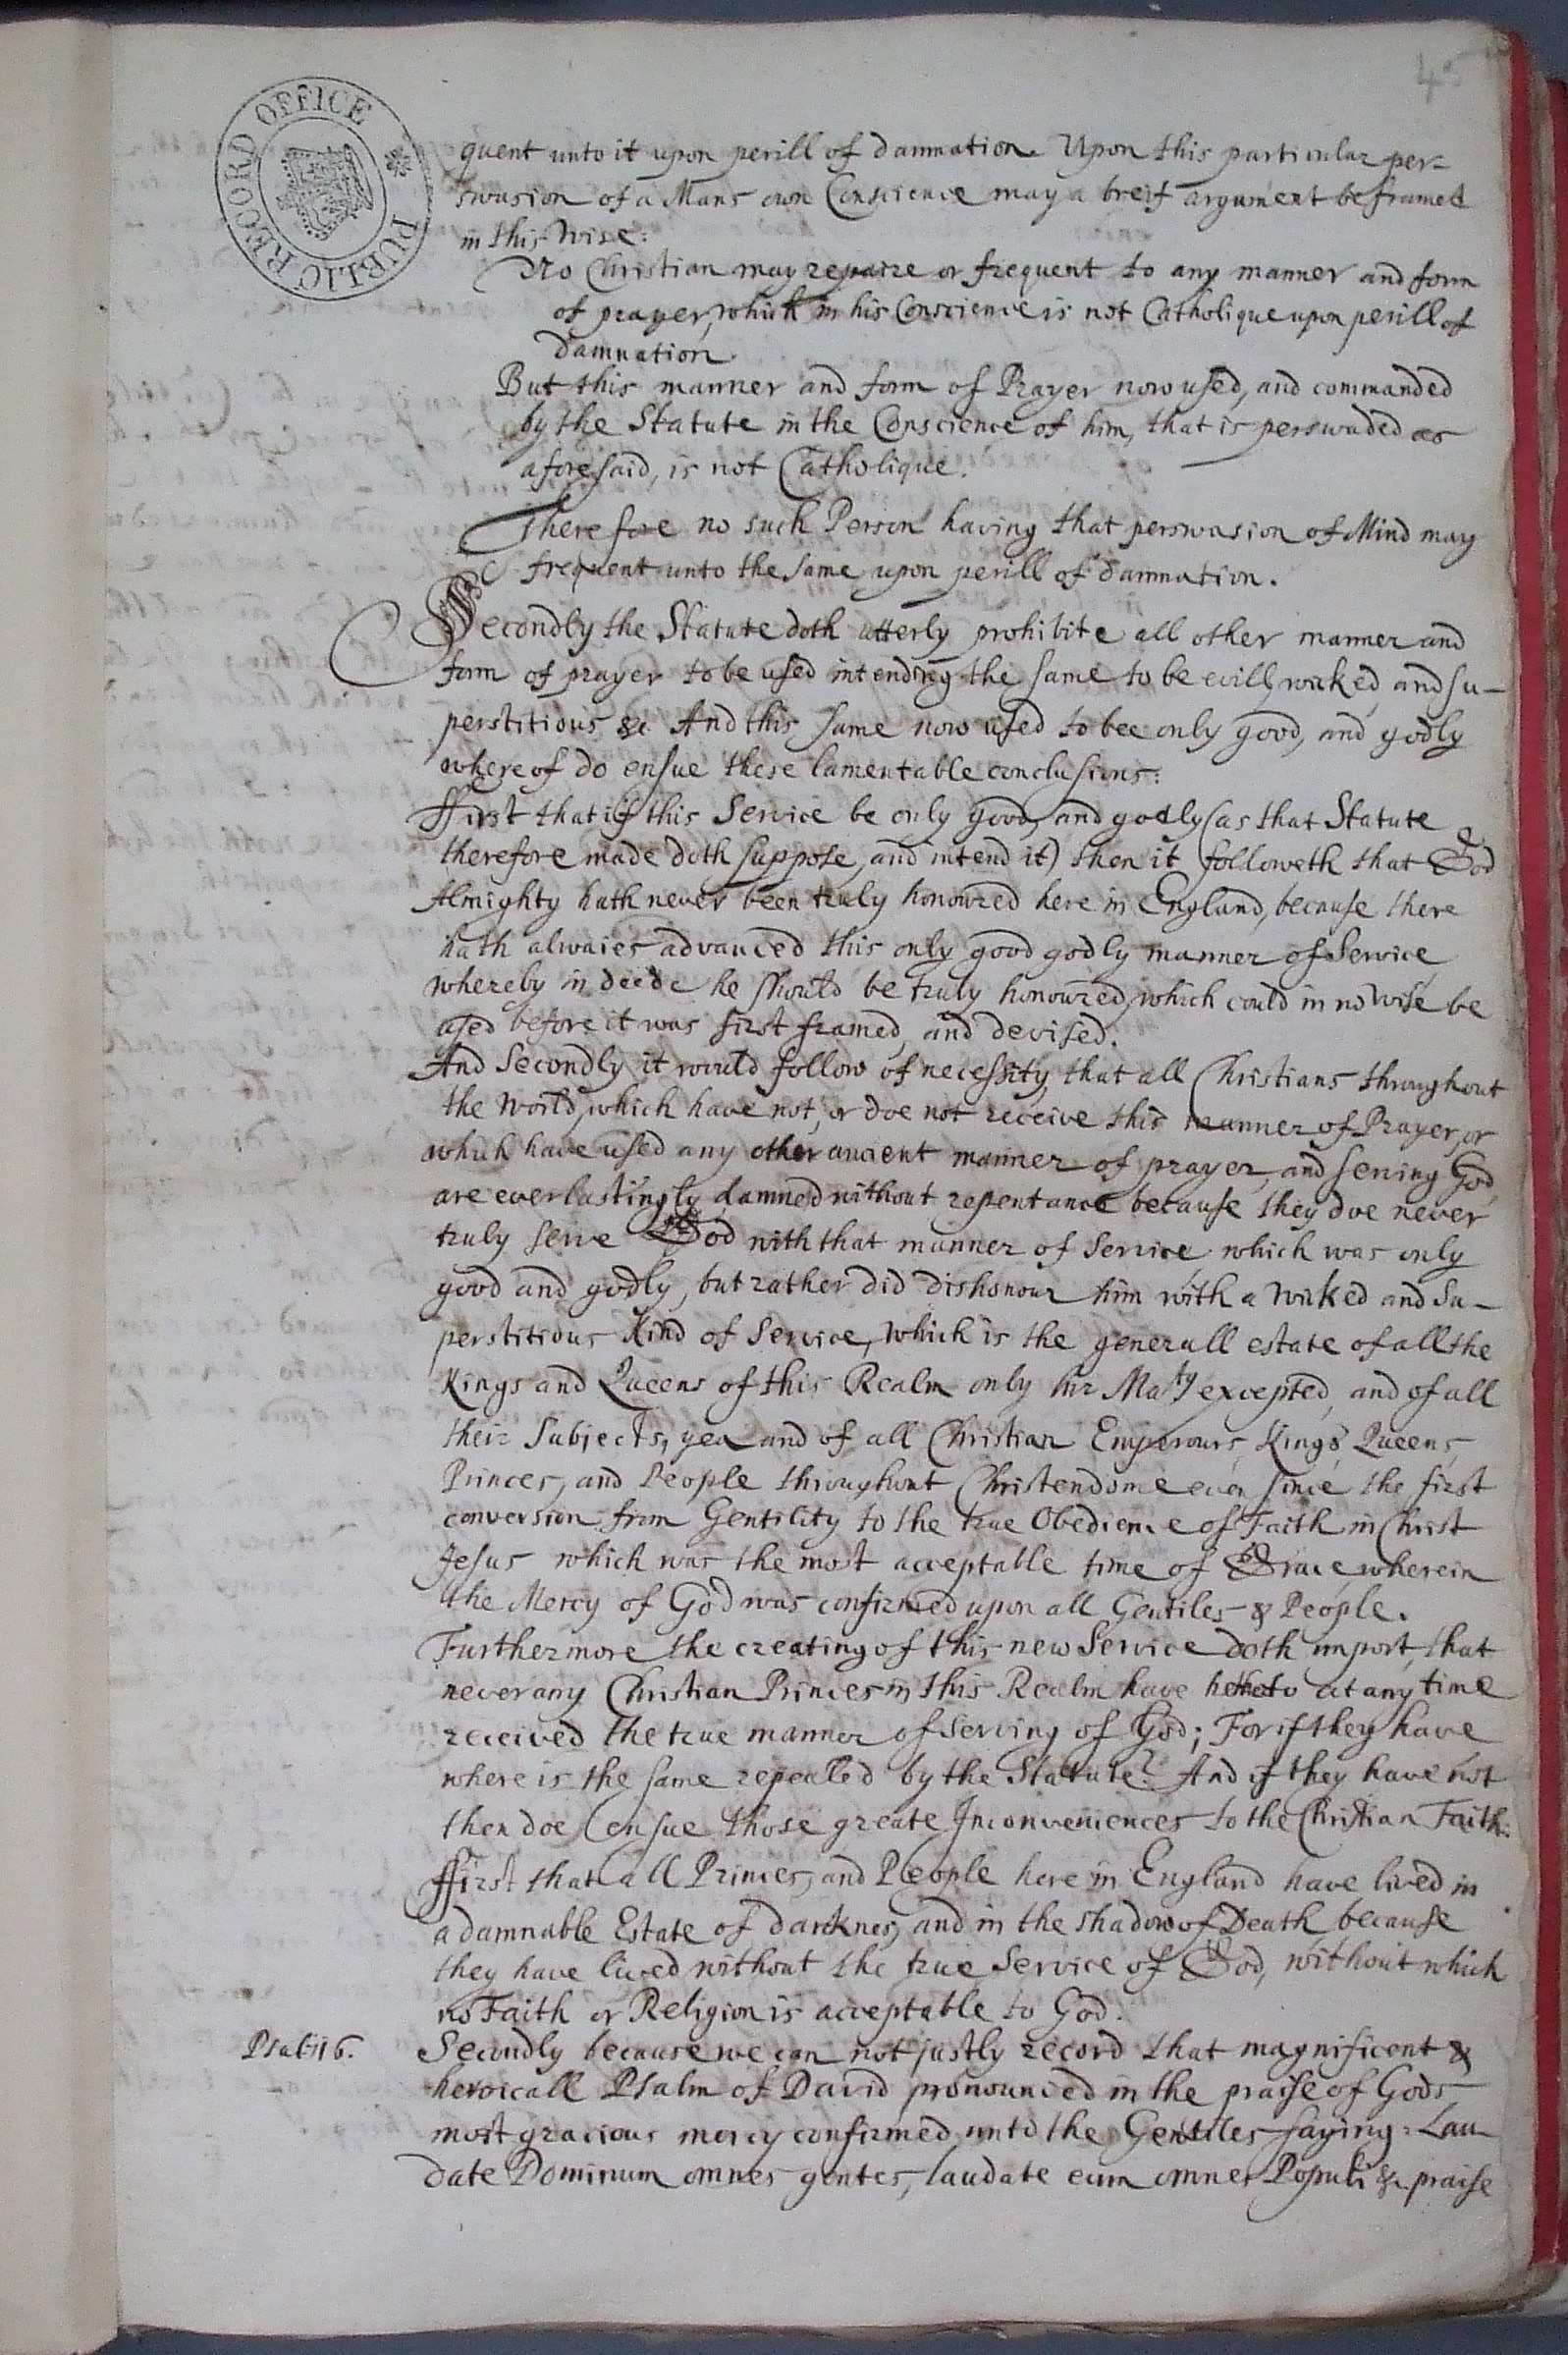 45
PUBLIC RECORD OFFICE
quent unto it upon perill of damnation. Upon this particular per=
swasion of a Mans own Conscience may a breif argument be framed
in this wise:
No Christian may repaire or frequent to any manner and form
of prayer, which in his Conscience is not Catholique upon perill of
damnation.
But this manner and form of Prayer now used, and commanded
by the Statute in the Conscience of him, that is perswaded as
aforesaid, is not Catholique.
Therefore no such Person having that perswasion of Mind may
frequent unto the same upon perill of damnation.
Secondly the Statute doth utterly prohibite all other manner and
form of prayer to be used intending the same to be evill, wicked, and su-
perstitious &c. And this same now used to bee only good, and godly
whereof do ensue these lamentable conclusions:
ffirst that if this Service be only good, and godly (as that Statute
therefore made doth suppose, and intend it) then it followeth that God
Almighty hath never been truly honoured here in England, because there
hath alwaies advanced this only good godly manner of Service
whereby in deede he should be truly honoured, which could in no wise be
used before it was first framed, and devised.
And Secondly it would follow of necessity, that all Christians throughout
the World, which have not, or doe not receive this manner of Prayer, or
which have used any other ancient manner of prayer, and serving God
are everlastingly damned without repentance because they doe never
truly serve God with that manner of Service which was only
good and godly, but rather did dishonour him with a wicked and Su-
perstitious Kind of Service, which is the generall estate of all the
Kings and Queens of this Realm only her Maty excepted, and of all
their Subjects, yea and of all Christian Emperours, Kings, Queens,
Princes, and People throughout Christendome ever since the first
conversion from Gentility to the true Obedience of Faith in Christ
Jesus which was the most acceptable time of Grace, wherein
the Mercy of God was confirmed upon all Gentiles & People.
Furthermore the creating of this new Service doth import, that
never any Christian Princes in this Realm have hetheto at any time
received the true manner of serving of God; For if they have
where is the same repealed by the Statute? And if they have not
then doe ensue those greate Inconveniences to the Christian Faith:
ffirst that all Princes, and People here in England have lived in
a damnable Estate of darknes, and in the shadow of Death, because
they have lived without the true Service of God, without which
no Faith or Religion is acceptable to God.
Psal: 116.
Secondly because we can not justly record that magnificent &
heroicall Psalm of David pronounced in the praise of Gods
most gracious mercy confirmed unto the Gentiles saying: Lau-
date Dominum omnes gentes, laudate eum omnes Populi &c. praise